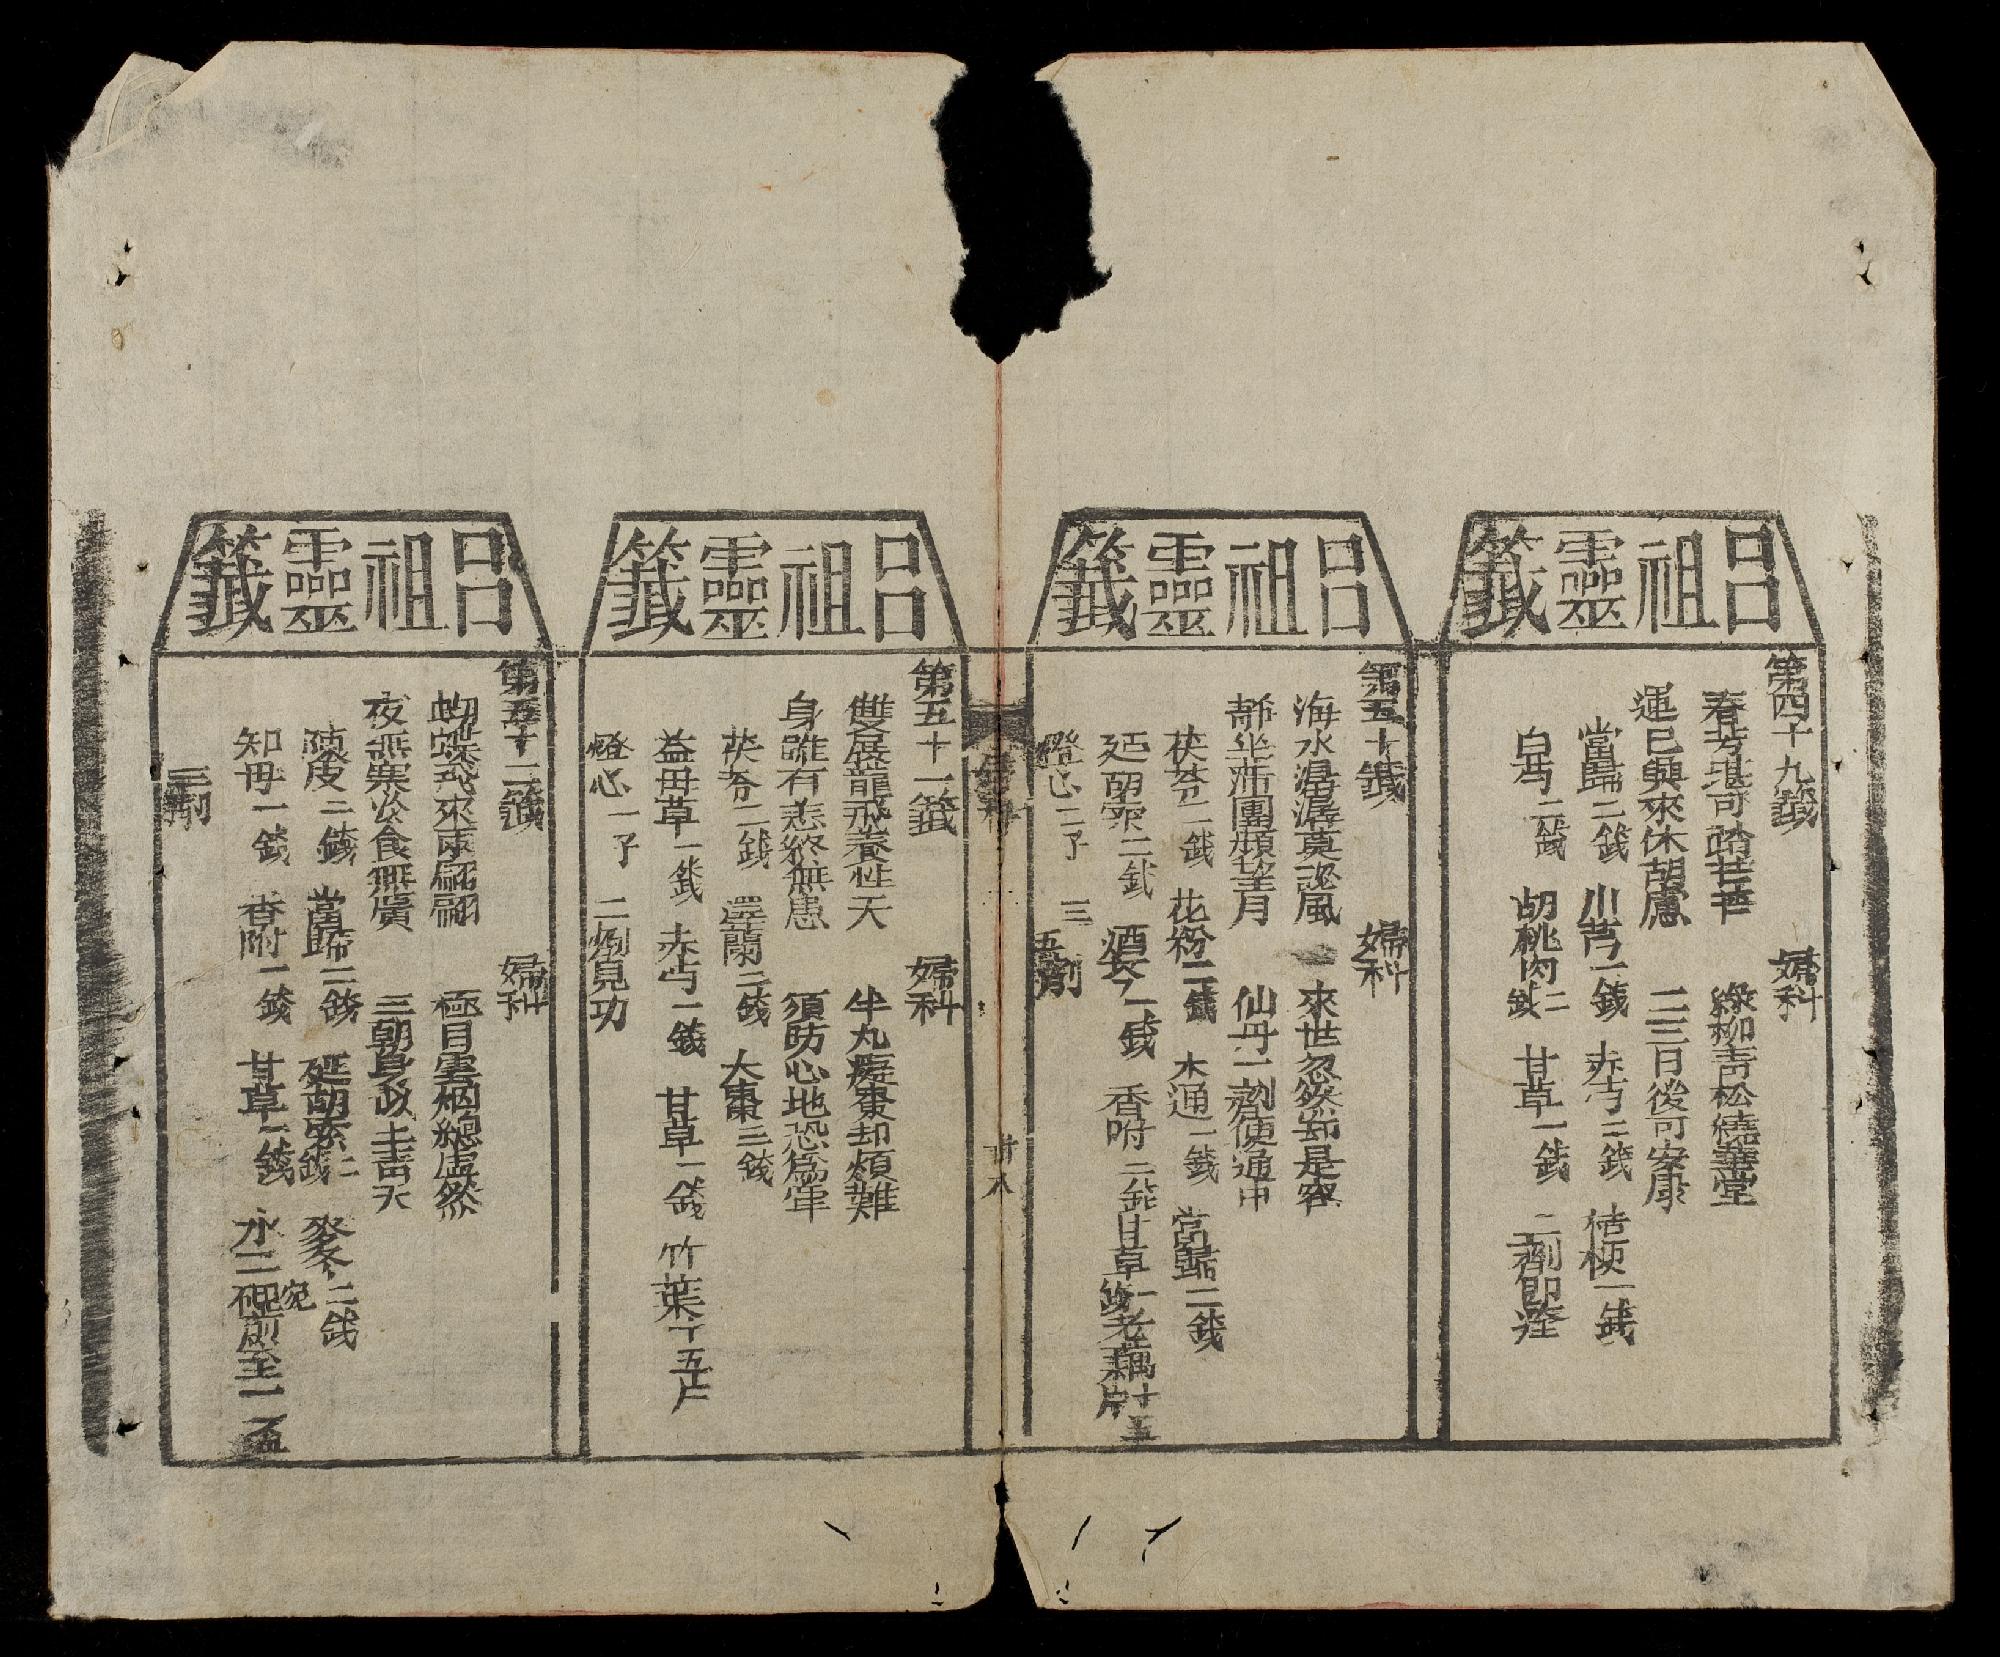 呂祖靈籤
第四十九籤 婦科
春芳堪可踏莊幸 綠柳青松繞華堂
運已興來休胡慮 二三日後可安康
當歸二錢 川芎一錢 赤芍二錢 桔梗一錢
白芍二錢 胡桃肉二錢 甘草一錢 二劑即痊
呂祖靈籤
第五十籤 婦科
海水潺潺莫認風 來世忽然却是容
靜坐蒲團頻望月 仙丹一劑使通中
茯苓二錢 花粉二錢 木通一錢 當歸二錢
延胡索二錢 酒芩一錢 香附二錢 甘草一錢 老藕十五片
燈心二子 三五劑
婦科
廿八
呂祖靈籤
第五十一籤 婦科
雙展龍飛養性天 半丸癡棗却煩難
身雖有恙終無患 須防心地恐為牢
茯苓二錢 澤蘭二錢 大棗三錢
益毋草一錢 赤芍一錢 甘草一錢 竹葉十五片
燈心一子 二劑見功
呂祖靈籤
第五十二籤 婦科
蝴蝶飛來兩翩翩 極目雲烟總虛然
夜無寨公食無廣 三朝身改上青天
陳皮二錢 當歸二錢 延胡索二錢 麥冬二錢
知毋一錢 香附一錢 甘草一錢 水二碗煎至一
三劑